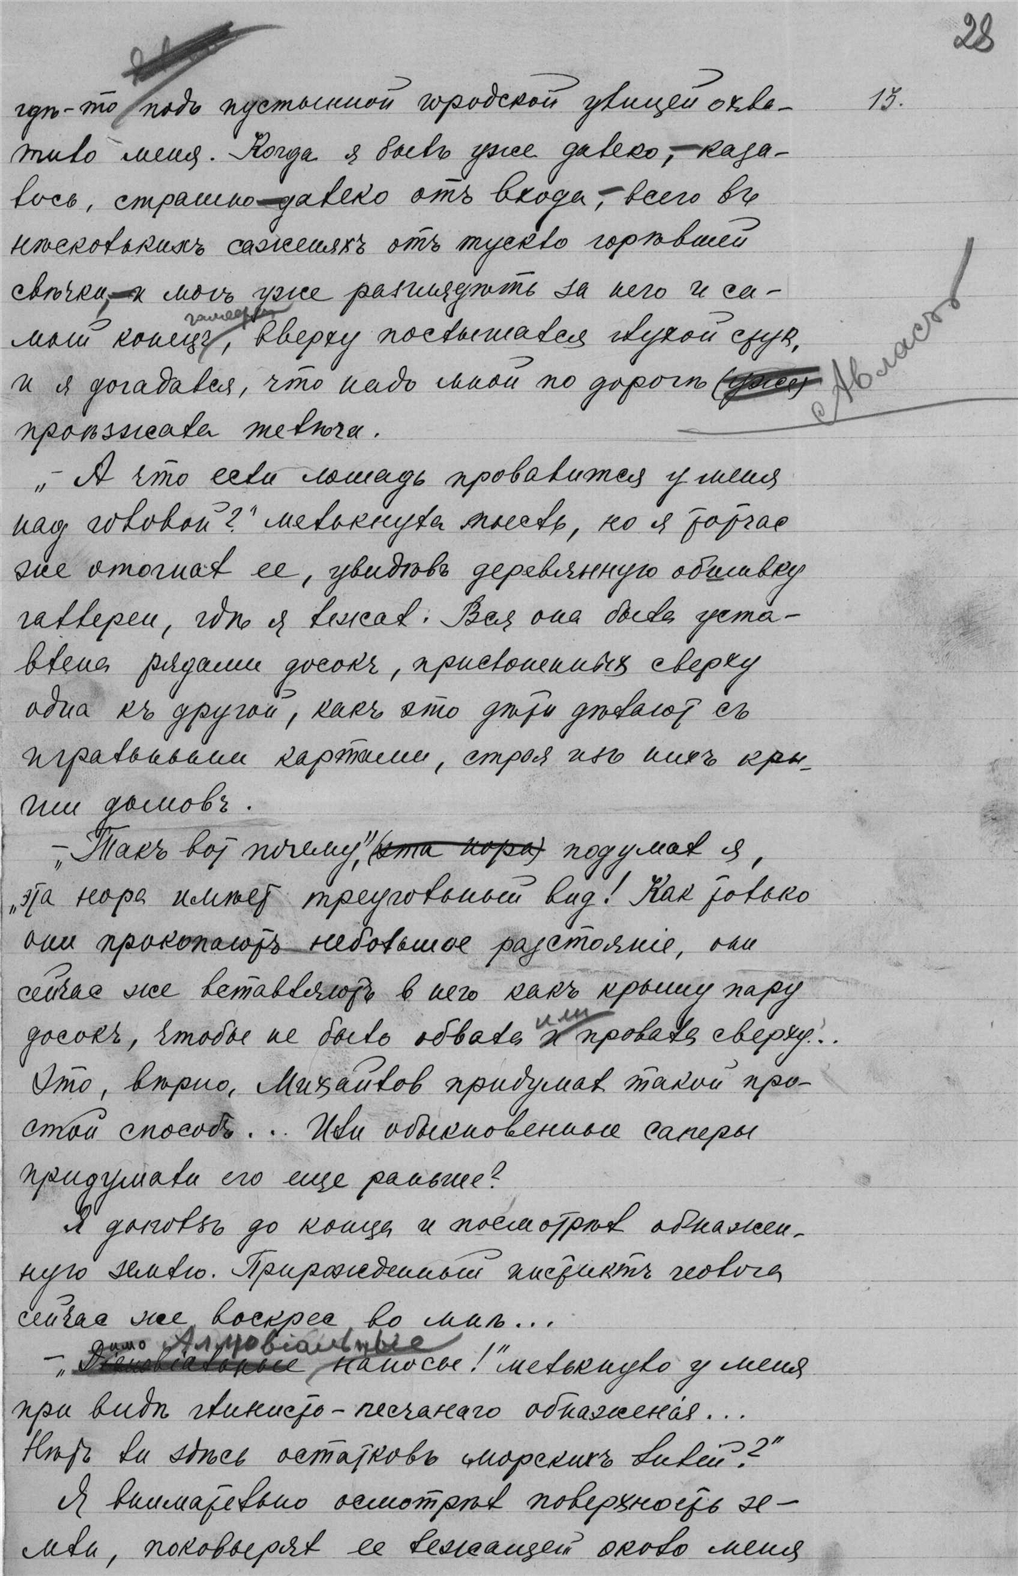 28
15.
гдѣ-то подъ пустынной городской улицей охва-
тило меня. Когда я былъ уже далеко, – каза-
лось, страшно далеко отъ входа, – всего въ
нѣсколькихъ саженяхъ отъ тускло горѣвшей
свѣчки, – и могъ уже разглядѣть за него и са-
галлереи
мый конецъ, вверху послышался глухой стук,
и я догадался, что надо мной по дорогѣ (уже)
проѣзжала телѣга.
с Авласъ
„– А что если лошадь провалится у меня
над головой?" мелькнула мысль, но я тотчас
же отогнал ее, увидѣвъ деревянную обшивку
галлереи, гдѣ я лежал. Вся она была уста-
влена рядами досокъ, прислоненных сверху
одна къ другой, какъ это дѣти дѣлают съ
игральными картами, строя изъ нихъ кры-
ши домовъ.
–„Такъ вот почему", (эта нора) подумал я,
„эта нора имѣет треугольный вид! Как только
они прокопаютъ небольшое разстояніе, они
сейчас же вставляютъ в него какъ крышу пару
или
досокъ, чтобы не было обвала и провала сверху!..
Это, вѣрно, Михайлов придумал такой про-
стой способъ... Или обыкновенные саперы
придумали его еще раньше?
Я доползъ до конца и посмотрѣл обнажен-
ную землю. Прирожденный инстинктъ геолога
сейчас же воскрес во мнѣ...
Аллювіальные
–„ наносы!" мелькнуло у меня
при видѣ глинисто-песчанаго обнаженія...
Нѣтъ ли здѣсь остатковъ морскихъ лилій?"
Я внимательно осмотрѣл поверхность зе-
мли, поковырял ее лежащей около меня